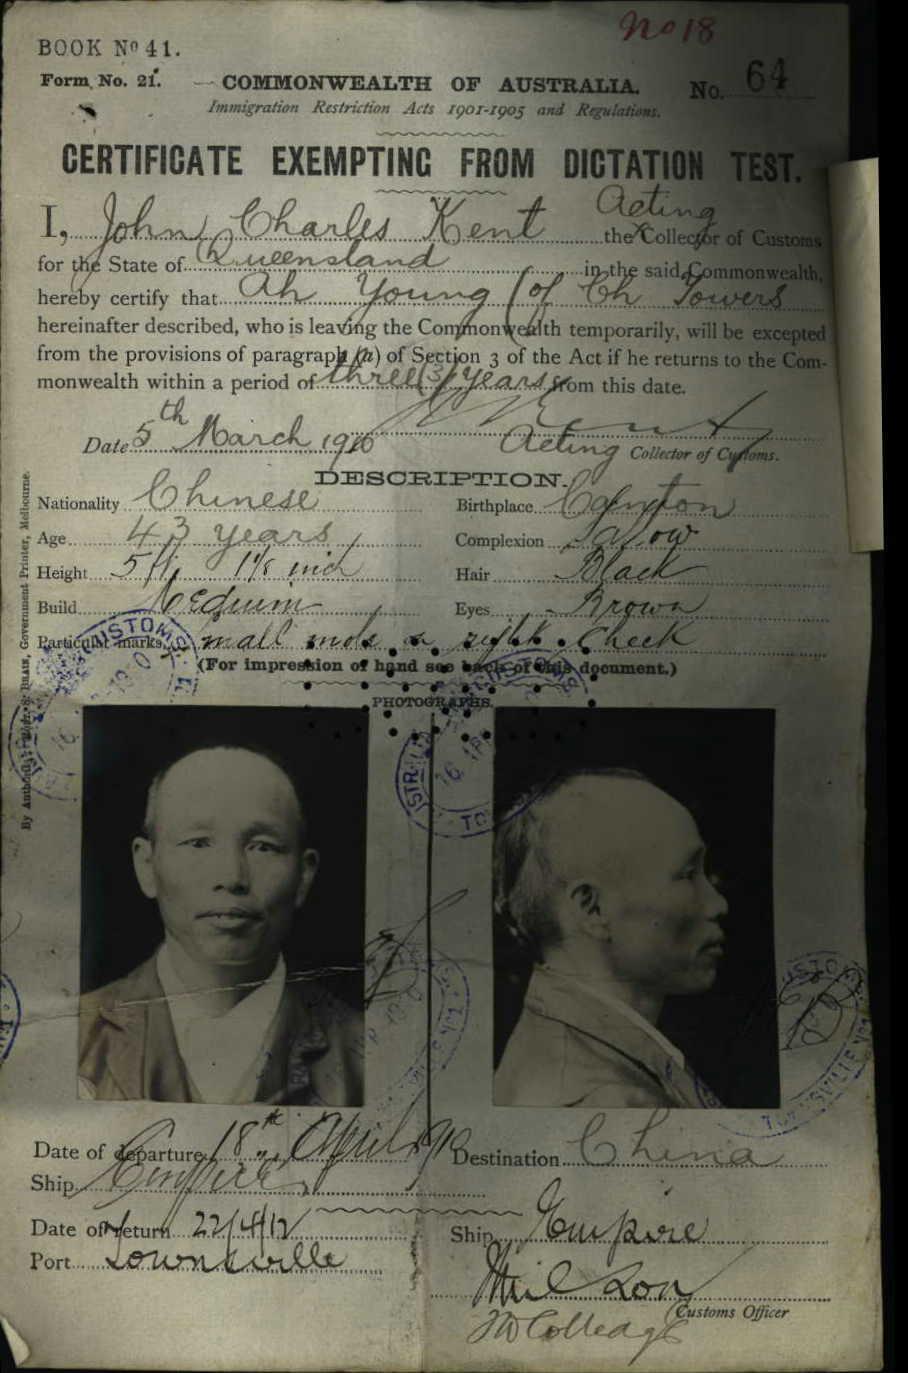 No 18
BOOK No 41.
Form No. 21.
COMMONWEALTH OF AUSTRALIA.
No. 64
Immigration Restriction Acts 1901-1905 and Regulations.
CERTIFICATE EXEMPTING FROM DICTATION TEST.
Acting
I, John Charles Kent the Collector of Customs
for the State of Queensland in the said Commonwealth,
hereby certify that Ah Young (of Ch Towers
hereinafter described, who is leaving the Commonwealth temporarily, will be excepted
from the provisions of paragraph (a) of Section 3 of the Act if he returns to the Com-
monwealth within a period of three (3) years from this date.
Date 5th March 1910
Acting Collector of Customs.
DESCRIPTION.
Nationality Chinese Birthplace Canton
Age 43 years Complexion Sallow
Height 5 ft 1 1/8 inch Hair Black
Build Medium Eyes Brown
Particular marks Small mole on right Cheek
(For impression of hand see back of this document.)
PHOTOGRAPHS.
Date of departure 18th April 1910 Destination China
Ship Empire
Date of return 22/4/12 Ship Empire
Port Townsville
Customs Officer
By Authority: Government Printer, Melbourne.